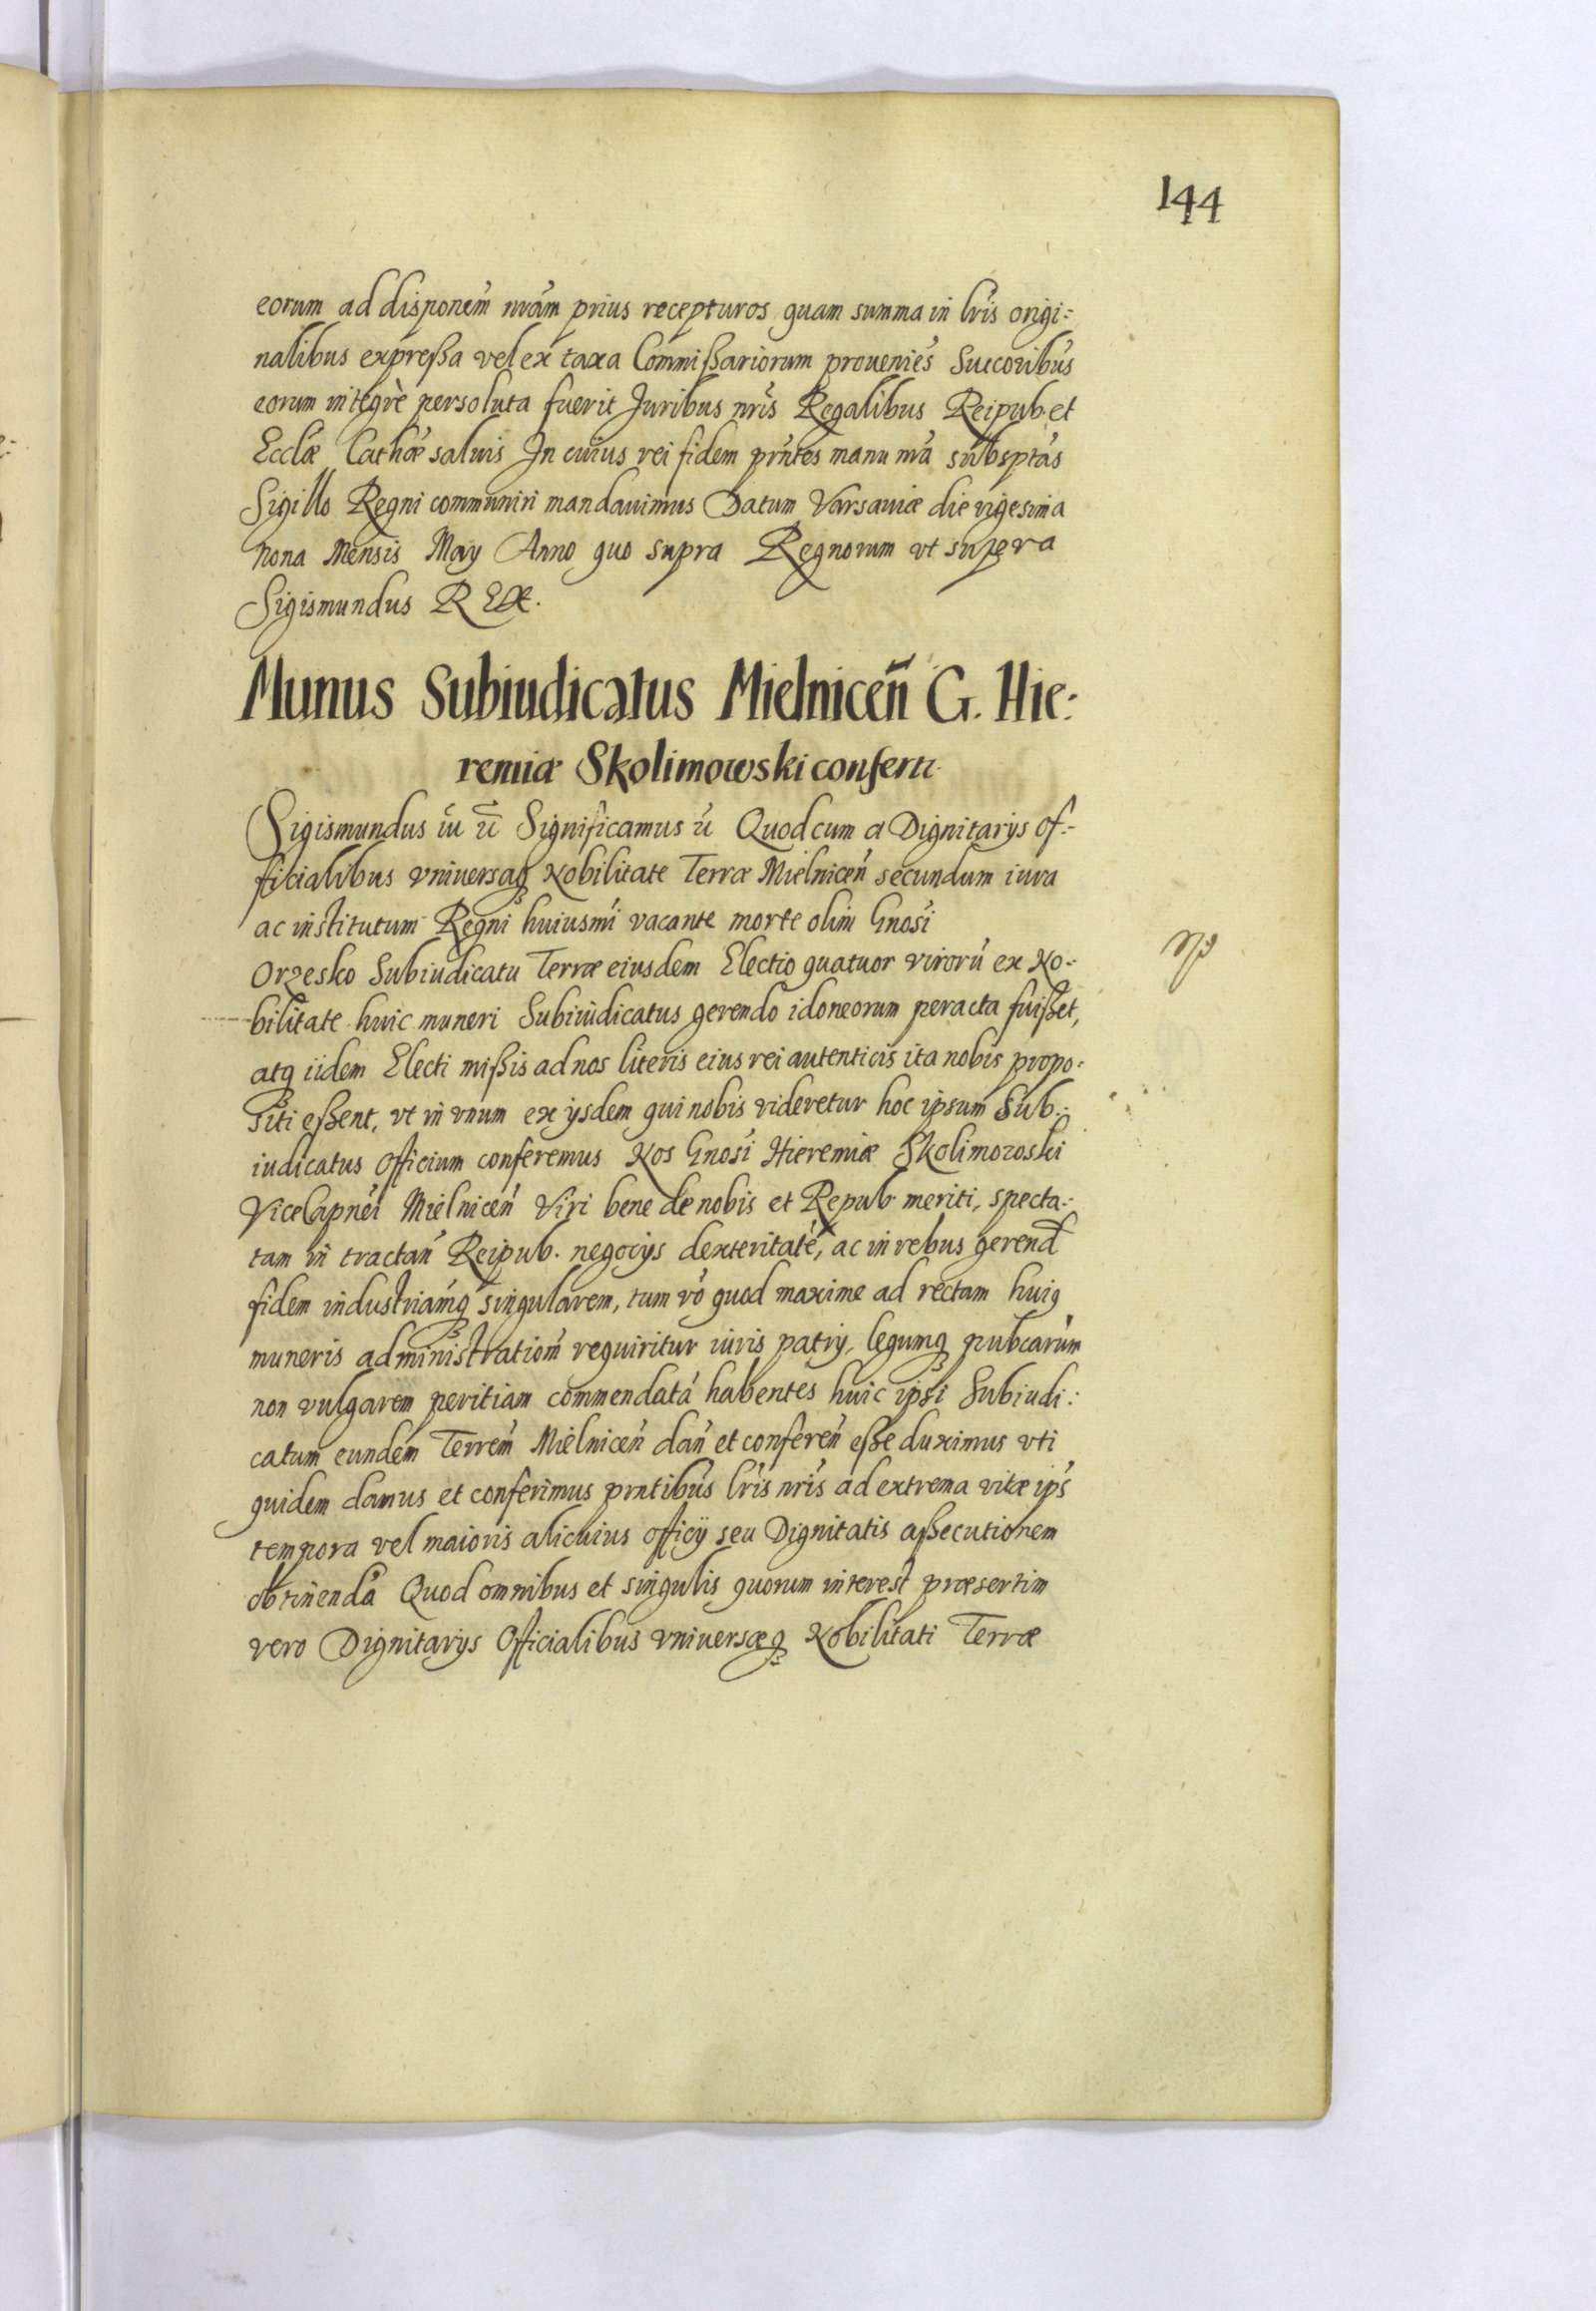 144
eorum ad disponem̃ nrãm prius recepturos quam summa in lrĩs origi:
nalibus expreßa vel ex taxa Commißariorum proueniẽs Succoribũs
eorum integrè persoluta fuerit Juribus nrĩs Regalibus Reipub. et
Ecclæ̃ Cathæ̃ saluis In cuius rei fidem prñtes manu nrã subsptãs
Sigillo Regni communiri mandauimus Datum Varsauiæ die vigesima
nona Mensis May Anno quo supra Regnorum vt supra
Sigismundus REX.
Munus Subiudicatus Mielniceñ G. Hie:
remiæ Skolimowski confertr.
Sigismundus iũ ũ Significamus ũ Quod cum a Dignitarys of:
ficialibus vniversaq₃ Nobilitate Terræ Mielniceñ secundum iura
ac institutum Regni huiusmĩ vacante morte olim Gnosĩ
Orzesko Subiudicatu Terræ eiusdem Electio quatuor virorũ ex No:
bilitate huic muneri Subiudicatus gerendo idoneorum peracta fuißet,
atq₃ iidem Electi mißis ad nos literis eius rei autenticis ita nobis propo:
siti eßent, vt in vnum ex ysdem qui nobis videretur hoc ipsum Sub:
iudicatus Officium conferemus Nos Gnosĩ Hieremiæ Skolimowski
Vicelapneĩ Mielniceñ Viri bene de nobis et Repub meriti, specta:
tam in tractañ Reipub. negocys dexteritatẽ, ac in rebus gerend
fidem industriamq₃ singularem, tum rõ quod maxime ad rectam huiq
muneris administrationẽ requiritur iuris patry, legumq₃ pubcarũm
non vulgarem peritiam commendatã habentes huic ipsi Subiudi:
catum eundem Terreñ Mielniceñ dañ et confereñ eße duximus vti
quidem damus et conferimus prntibũs lrĩs nrĩs ad extrema vitæ ips̃
tempora vel maioris alicuius officÿ seu Dignitatis aßecutionem
obtinendã Quod omnibus et singulis quorum interest præsertim
vero Dignitarys Officialibus vniversæq₃ Nobilitati Terræ